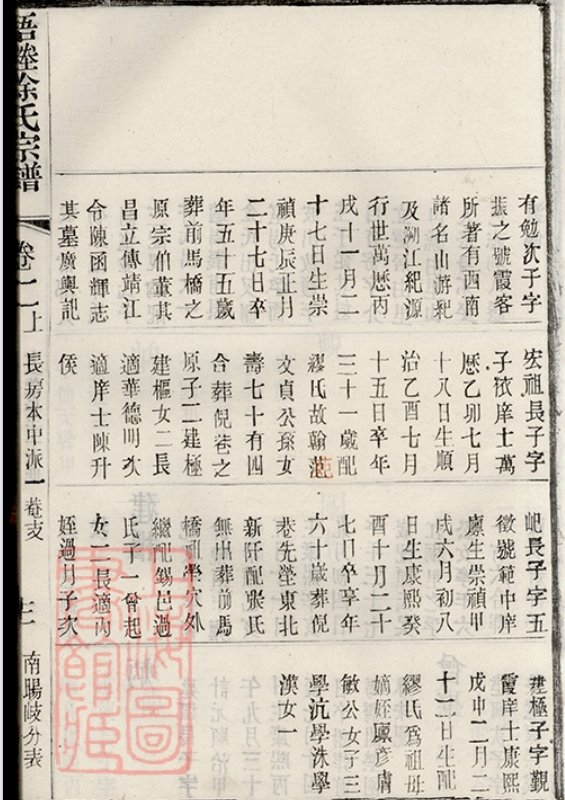 有勉次子字
振之號霞客
所著有西南
諸名山游紀
及溯江紀源
行世萬曆丙
戌十一月二
十七日生崇
禎庚辰正月
二十七日卒
年五十五歲
葬前馬橋之
原宗伯董其
昌立傳靖江
令陳函輝志
其墓廣輿記
宏祖長子字
子依庠士萬
曆乙卯七月
十八日生順
治乙酉七月
十五日卒年
三十一歲配
繆氏故翰范
苑
文貞公孫女
壽七十有四
合葬倪巷之
原子二建極
建樞女二長
適華德明次
適庠士陳升
侯
屺長子字五
徵號範中庠
廩生崇禎甲
戌六月初八
日生康熙癸
酉十月二十
七日卒享年
六十歲葬倪
巷先塋東北
新阡配張氏
無出葬前馬
橋祖塋穴外
繼配錫邑過
氏子一曾起
女二長適丙
姪過月子次
建極子字覲
霞庠士康熙
戊申二月二
十二日生配
繆氏為祖母
嫡姪廩彥膚
敏公女子三
學沆學洙學
漢女一
梧塍徐氏宗譜 卷二上 長房本中派 巷支 南暘岐分表
上海圖書館藏